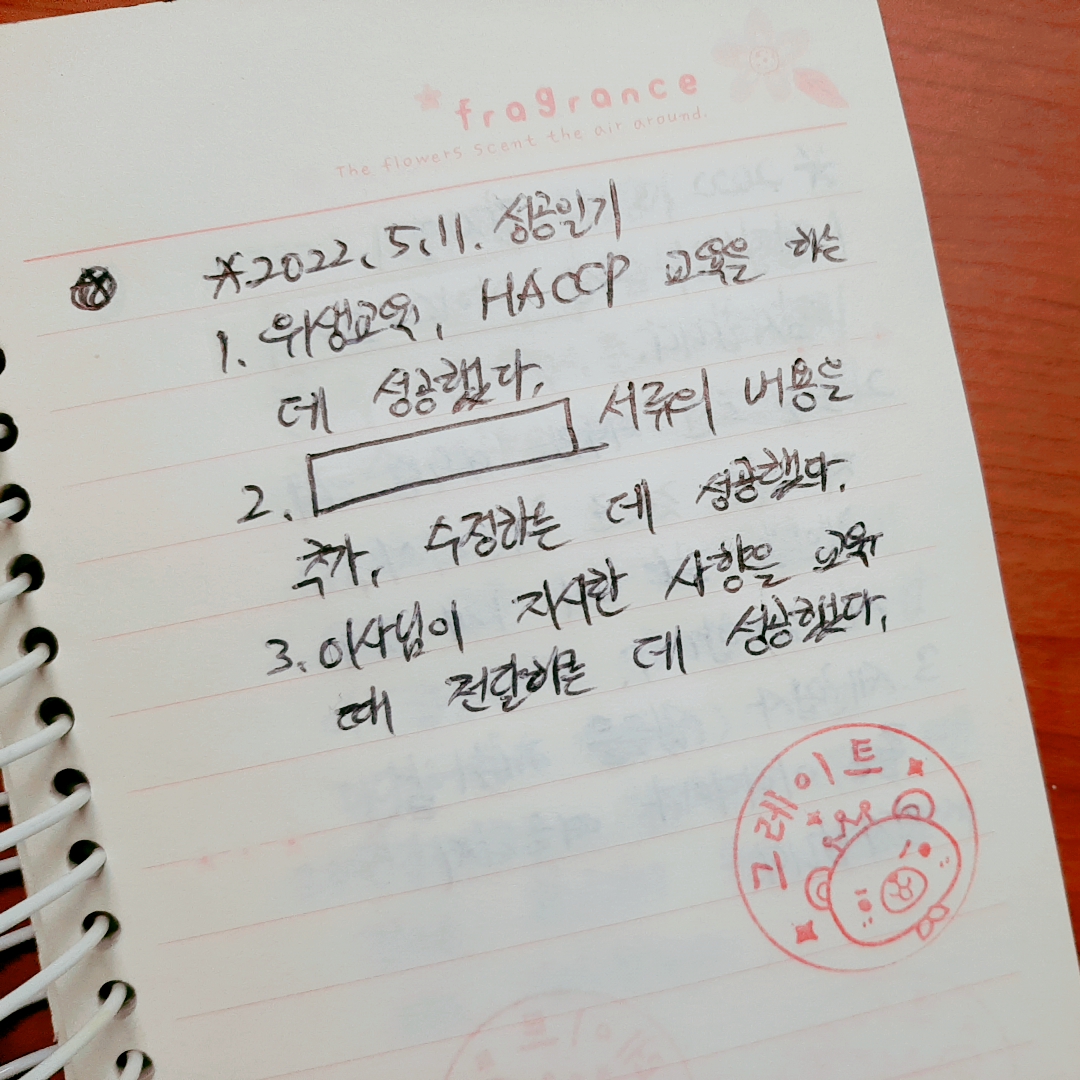 fragrance
The flowers scent the air around.
※2022. 5. 11. 성공일기
1. 위생교육, HACCP 교육을 하는
데 성공했다.
2. 서류의 내용을
추가, 수정하는 데 성공했다.
3. 이사님이 지시한 사항을 교육
때 전달하는 데 성공했다.
그레이트